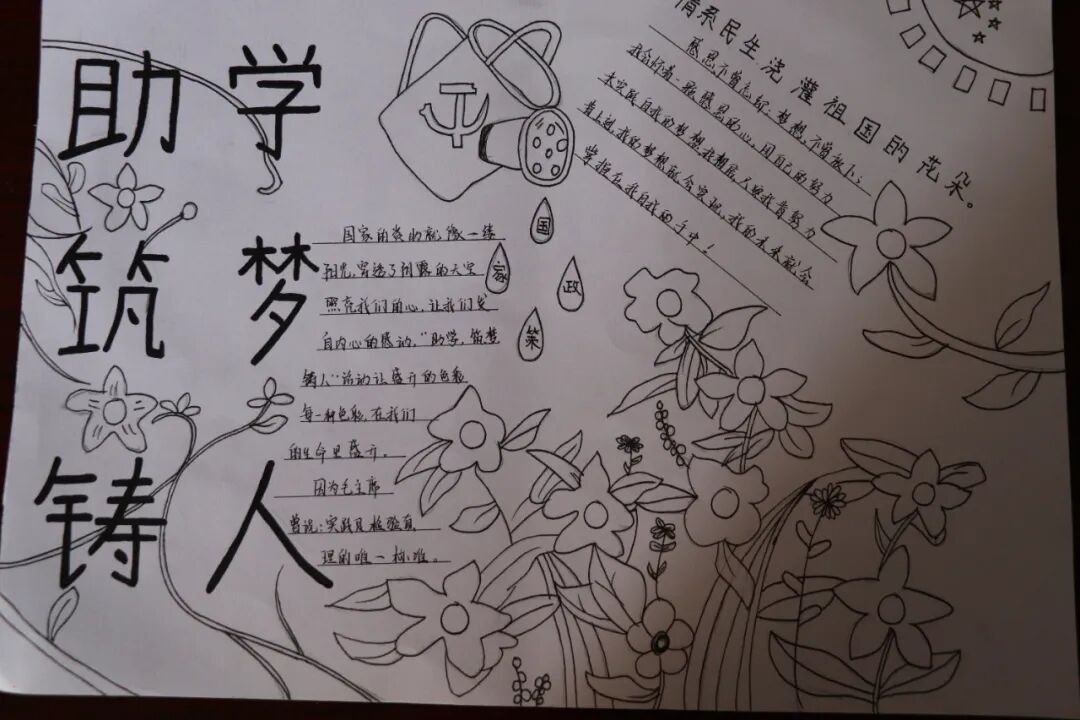 助学
筑梦
铸人
国家的资助就像一缕
阳光,穿透了阴霾的天空
照亮我们的心,让我们发
自内心的感动,“助学,筑梦
铸人”活动让盛开的色彩
每一种色彩,在我们
的生命里盛开。
因为毛主席
曾说:实践是检验真
理的唯一标准。
国
家
政
策
情系民生浇灌祖国的花朵。
感恩不曾忘记,梦想不曾放下;
我会怀着一颗感恩的心,用自己的努力
去实现自我的梦想,我相信,只要我肯努力
肯上进,我的梦想就会实现,我的未来就会
掌握在我自我的手中!